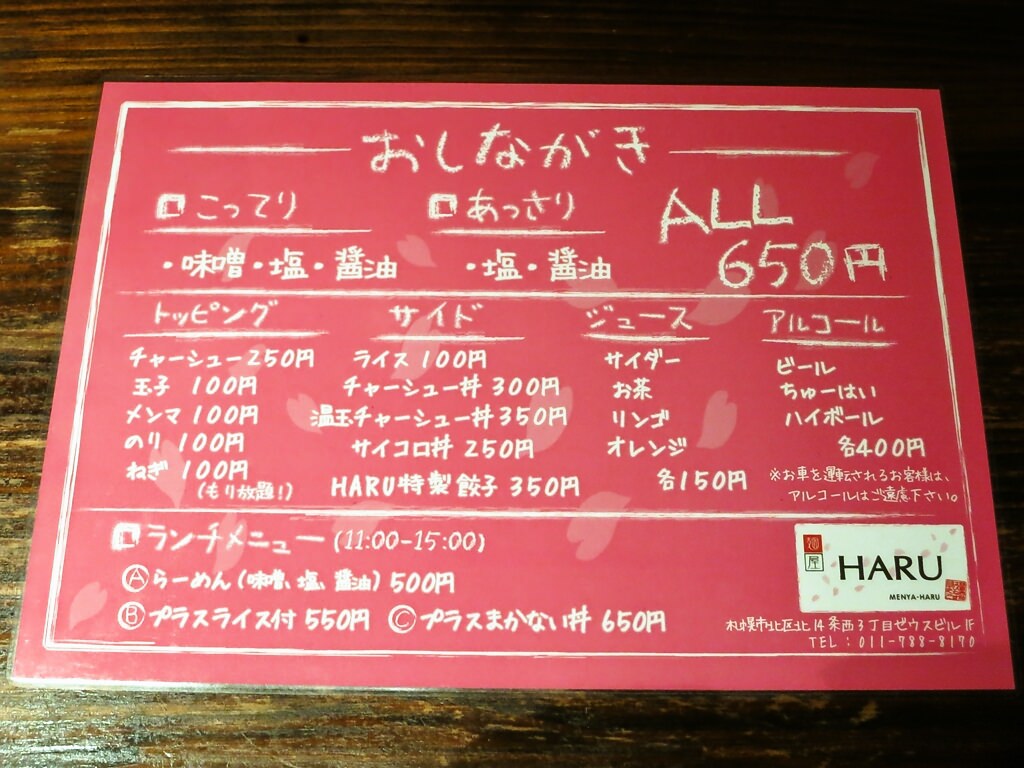 おしながき
□ こってり
・味噌・塩・醤油
□ あっさり
・塩・醤油
ALL
650円
トッピング
チャーシュー 250円
玉子 100円
メンマ 100円
のり 100円
ねぎ 100円
(もり放題!)
サイド
ライス 100円
チャーシュー丼 300円
温玉チャーシュー丼 350円
サイコロ丼 250円
HARU特製餃子 350円
ジュース
サイダー
お茶
リンゴ
オレンジ
各150円
アルコール
ビール
ちゅーはい
ハイボール
各400円
※お車を運転されるお客様は、
アルコールはご遠慮下さい。
□ ランチメニュー (11:00-15:00)
Ⓐ らーめん (味噌、塩、醤油) 500円
Ⓑ プラスライス付 550円 Ⓒ プラスまかない丼 650円
麺屋 HARU
MENYA-HARU
札幌市北区北14条西3丁目ゼウスビル1F
TEL:011-788-8170